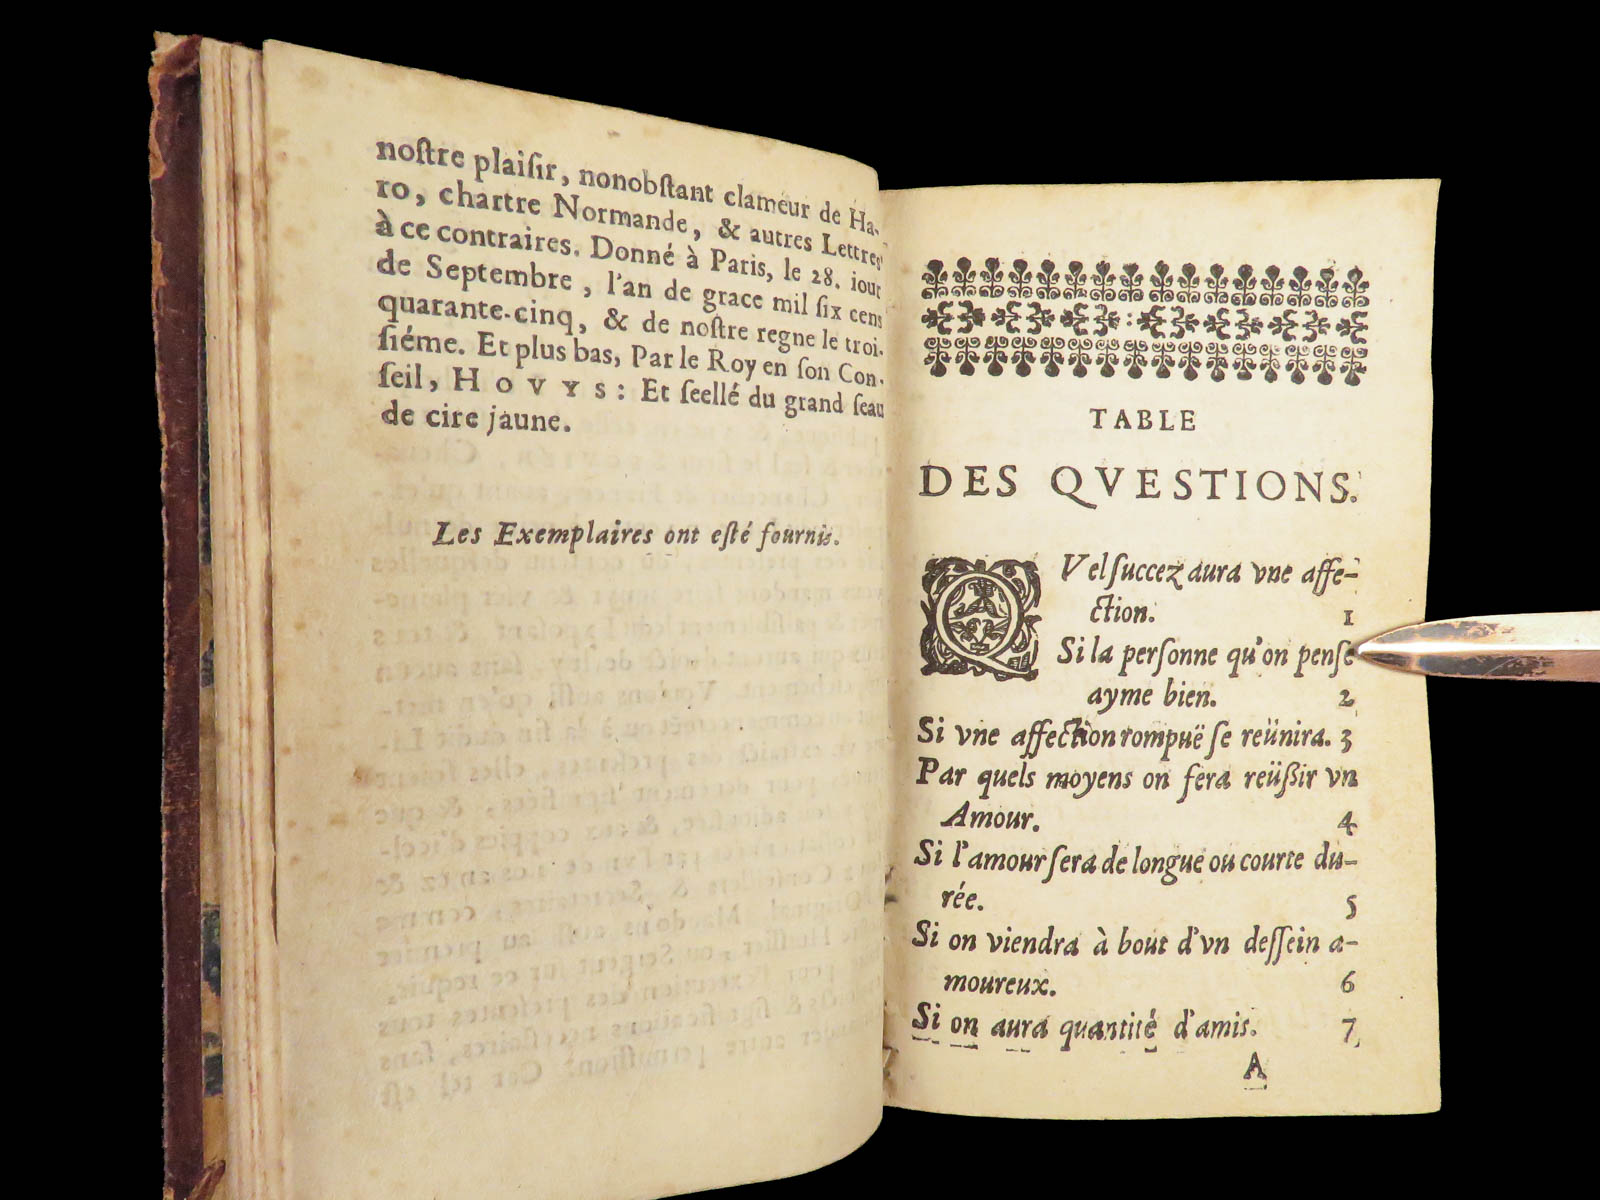 noſtre plaiſir, nonobſtant clameur de Ha-
ro, chartre Normande, & autres Lettres
à ce contraires. Donné à Paris, le 28. iour
de Septembre, l'an de grace mil ſix cens
quarante-cinq, & de noſtre regne le troi-
ſiéme. Et plus bas, Par le Roy en ſon Con-
ſeil, HOVYS: Et ſeellé du grand ſeau
de cire jaune.
Les Exemplaires ont eſté fournis.
TABLE
DES QVESTIONS.
QVel ſuccez aura vne affe-
ction. 1
Si la perſonne qu'on penſe
ayme bien. 2
Si vne affection rompuë ſe reünira. 3
Par quels moyens on fera reüßir vn
Amour. 4
Si l'amour ſera de longue ou courte du-
rée. 5
Si on viendra à bout d'vn deſſein a-
moureux. 6
Si on aura quantité d'amis. 7
A